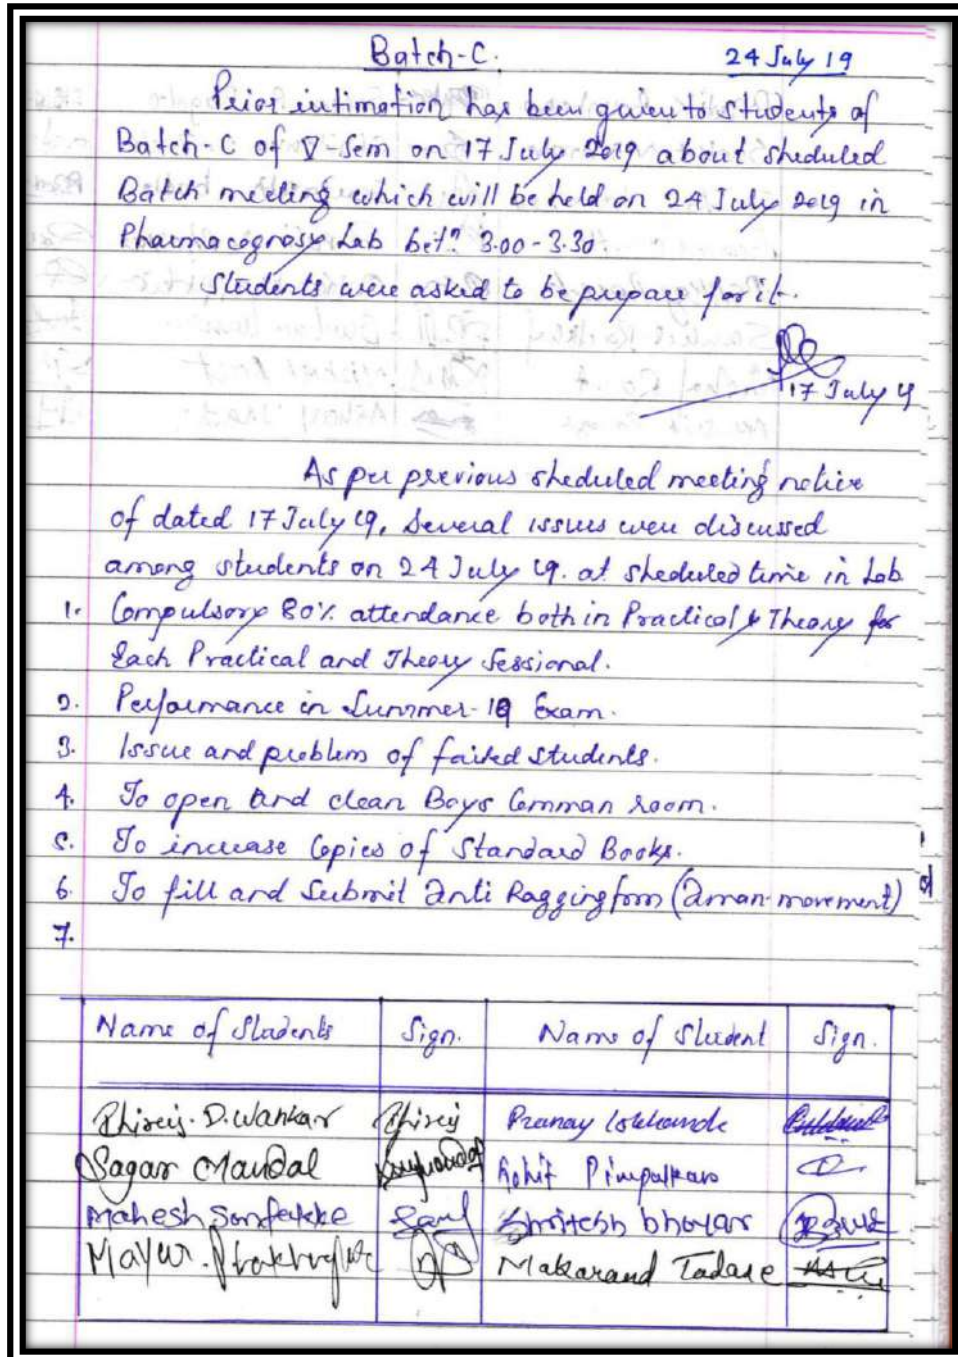 Batch-C.
24 July 19
Prior intimation has been given to students of
Batch-C of V-Sem on 17 July 2019 about sheduled
Batch meeting which will be held on 24 July 2019 in
Pharmacognosy Lab betn 3.00-3.30
Students were asked to be prepare for it.
17 July 19
As per previous sheduled meeting notice
of dated 17 July 19, several issues were discussed
among students on 24 July 19. at sheduled time in Lab
1. Compulsory 80% attendance both in Practical & Theory for
Each Practical and Theory Sessional.
2. Performance in Summer-19 Exam.
3. Issue and problem of failed students.
4. To open and clean Boys Comman room.
5. To increase Copies of Standard Books.
6. To fill and Submit Anti Ragging form (Aman-movement)
7.
Name of Students Sign. Name of Student Sign.
D. Wankar Pranay Lokhande
Sagar Mandal Rohit Pimpalkar
Mahesh bhoyar
Mayur. Makarand Tadase